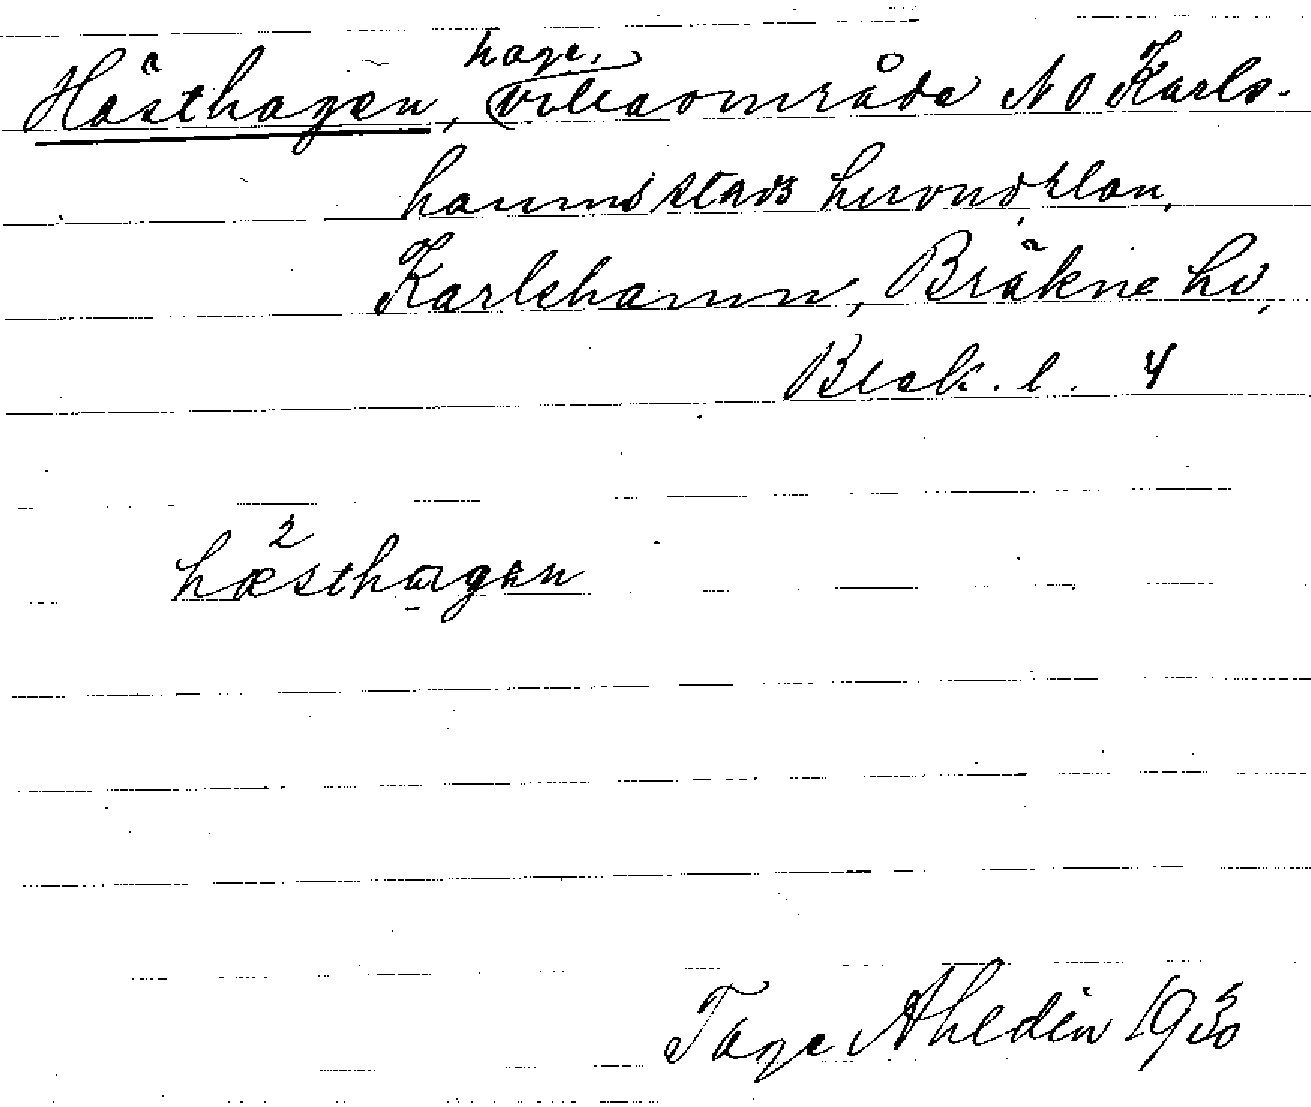 Hästhagen, hage, villaområde NO Karls-
hamns stads huvuddel,
Karlshamn, Bräkne hd,
Blek. l. 4
hæ²sthagen
Tage Ahldén 1930